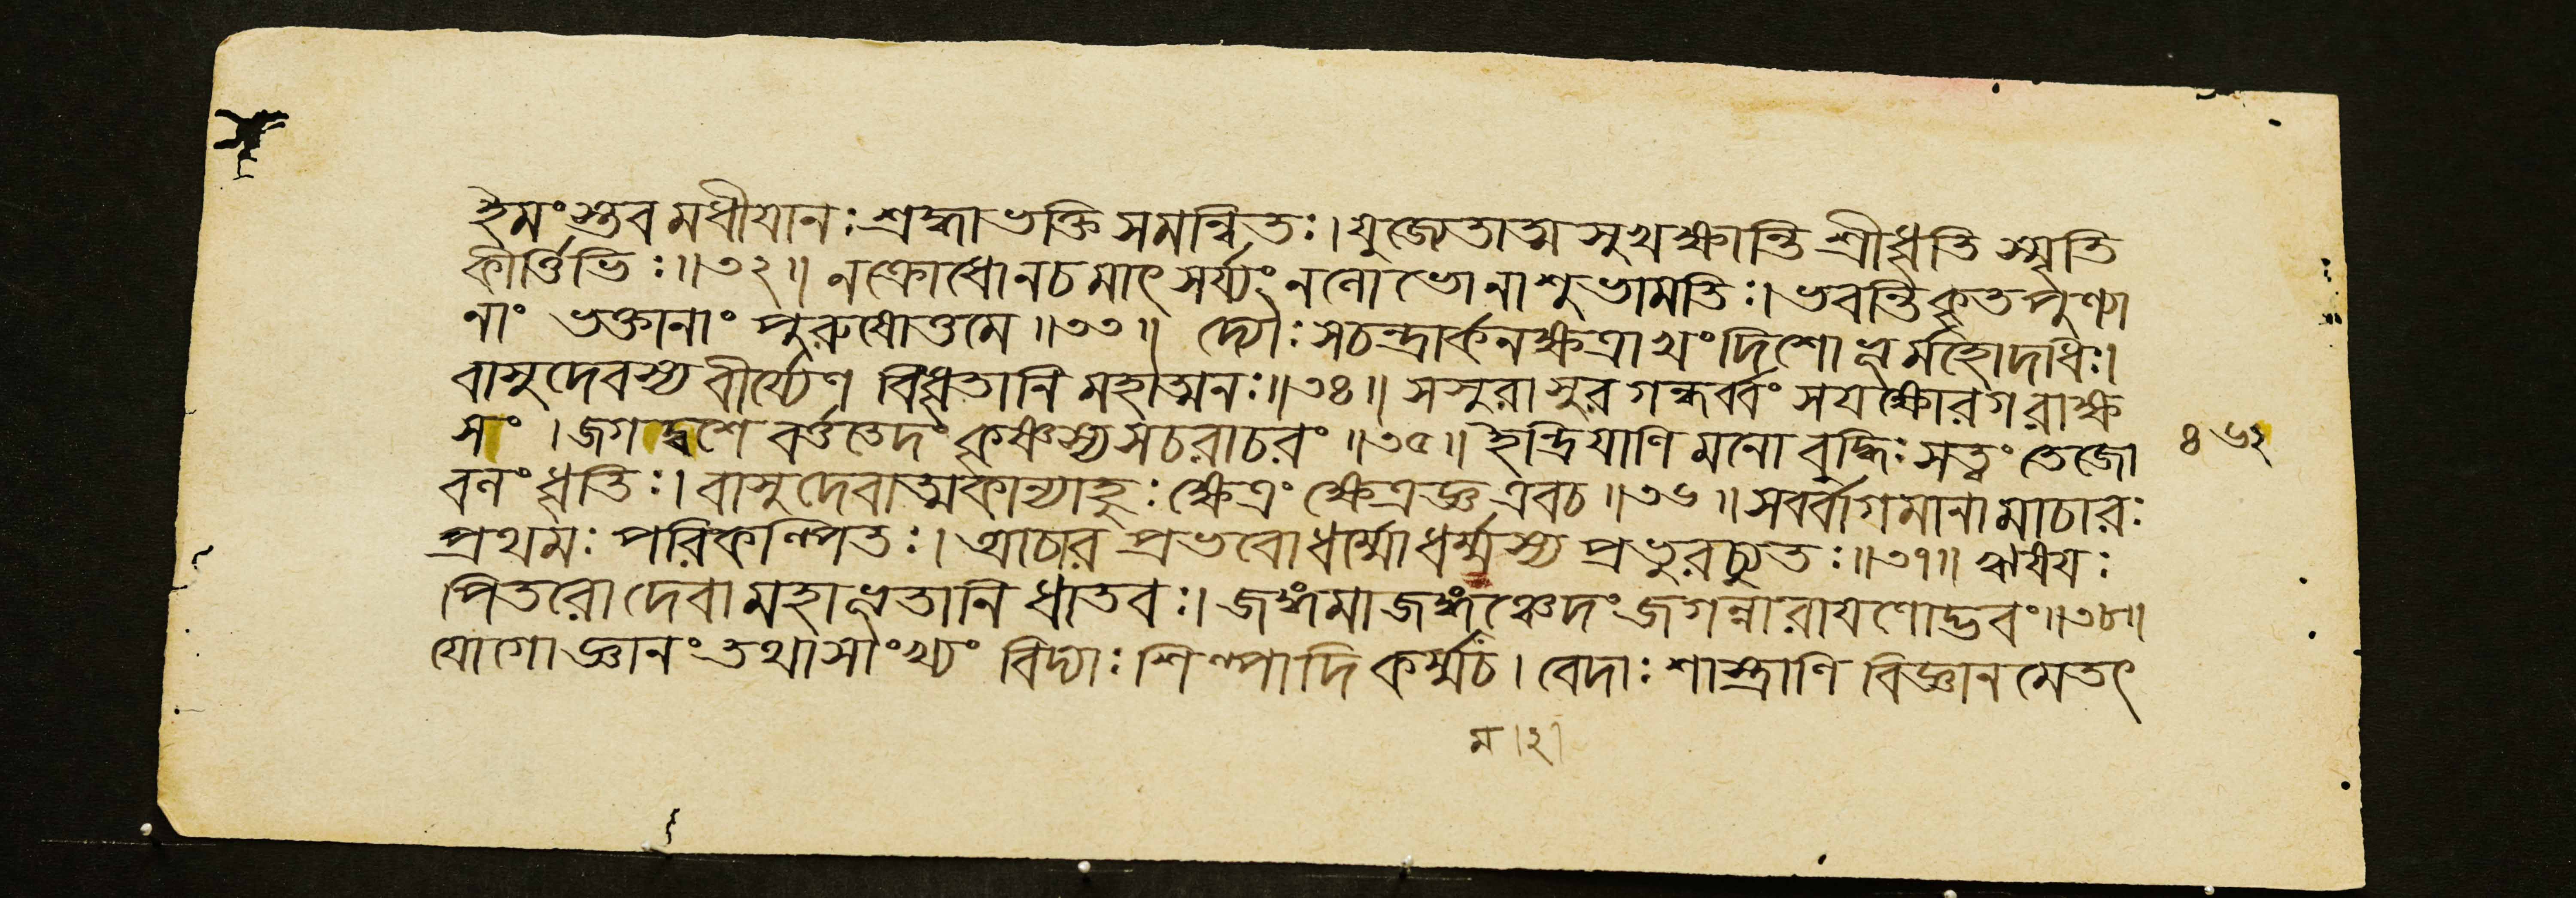 ইমং স্তব মধীযানঃ শ্রদ্ধাভক্তি সমন্বিতঃ। যুজ্যেতাত্ম সুখক্ষান্তি শ্রীধৃতি স্মৃতি
কীর্ত্তিভিঃ॥৩২॥ নক্রোধোনচমাৎসর্য্যং নলোভোনাশুভামতিঃ। ভবন্তিকৃতপুণ্যা
নাং ভক্তানাং পুরুষোত্তমে॥৩৩॥ দ্যৌঃ সচন্দ্রার্কনক্ষত্রাখং দিশোভূর্মহোদধিঃ।
বাসুদেবস্য বীর্য্যেণ বিধৃতানি মহাত্মনঃ॥৩৪॥ সসুরাসুর গন্ধর্ব্বং সযক্ষোরগরাক্ষ
সং। জগদ্বশে বর্ত্ততেদং কৃষ্ণস্যসচরাচরং॥৩৫॥ ইন্দ্রিযাণি মনো বুদ্ধিঃ সত্ত্বং তেজো
৪৬২
বলং ধৃতিঃ। বাসুদেবাত্মকান্যাহুঃ ক্ষেত্রং ক্ষেত্রজ্ঞ এবচ॥৩৬॥ সর্ব্বাগমানামাচারঃ
প্রথমঃ পরিকল্পিতঃ। আচার প্রভবোধর্ম্মোধর্ম্মস্য প্রভুরচ্যুতঃ॥৩৭॥ ঋষযঃ
পিতরো দেবা মহাভূতানি ধাতবঃ। জঙ্গমাজঙ্গমঞ্চেদং জগন্নারাযণোদ্ভবং॥৩৮॥
যোগো জ্ঞানং তথাসাংখ্যং বিদ্যাঃ শিল্পাদি কর্ম্মচ। বেদাঃ শাস্ত্রাণি বিজ্ঞান মেতৎ
ম।২।